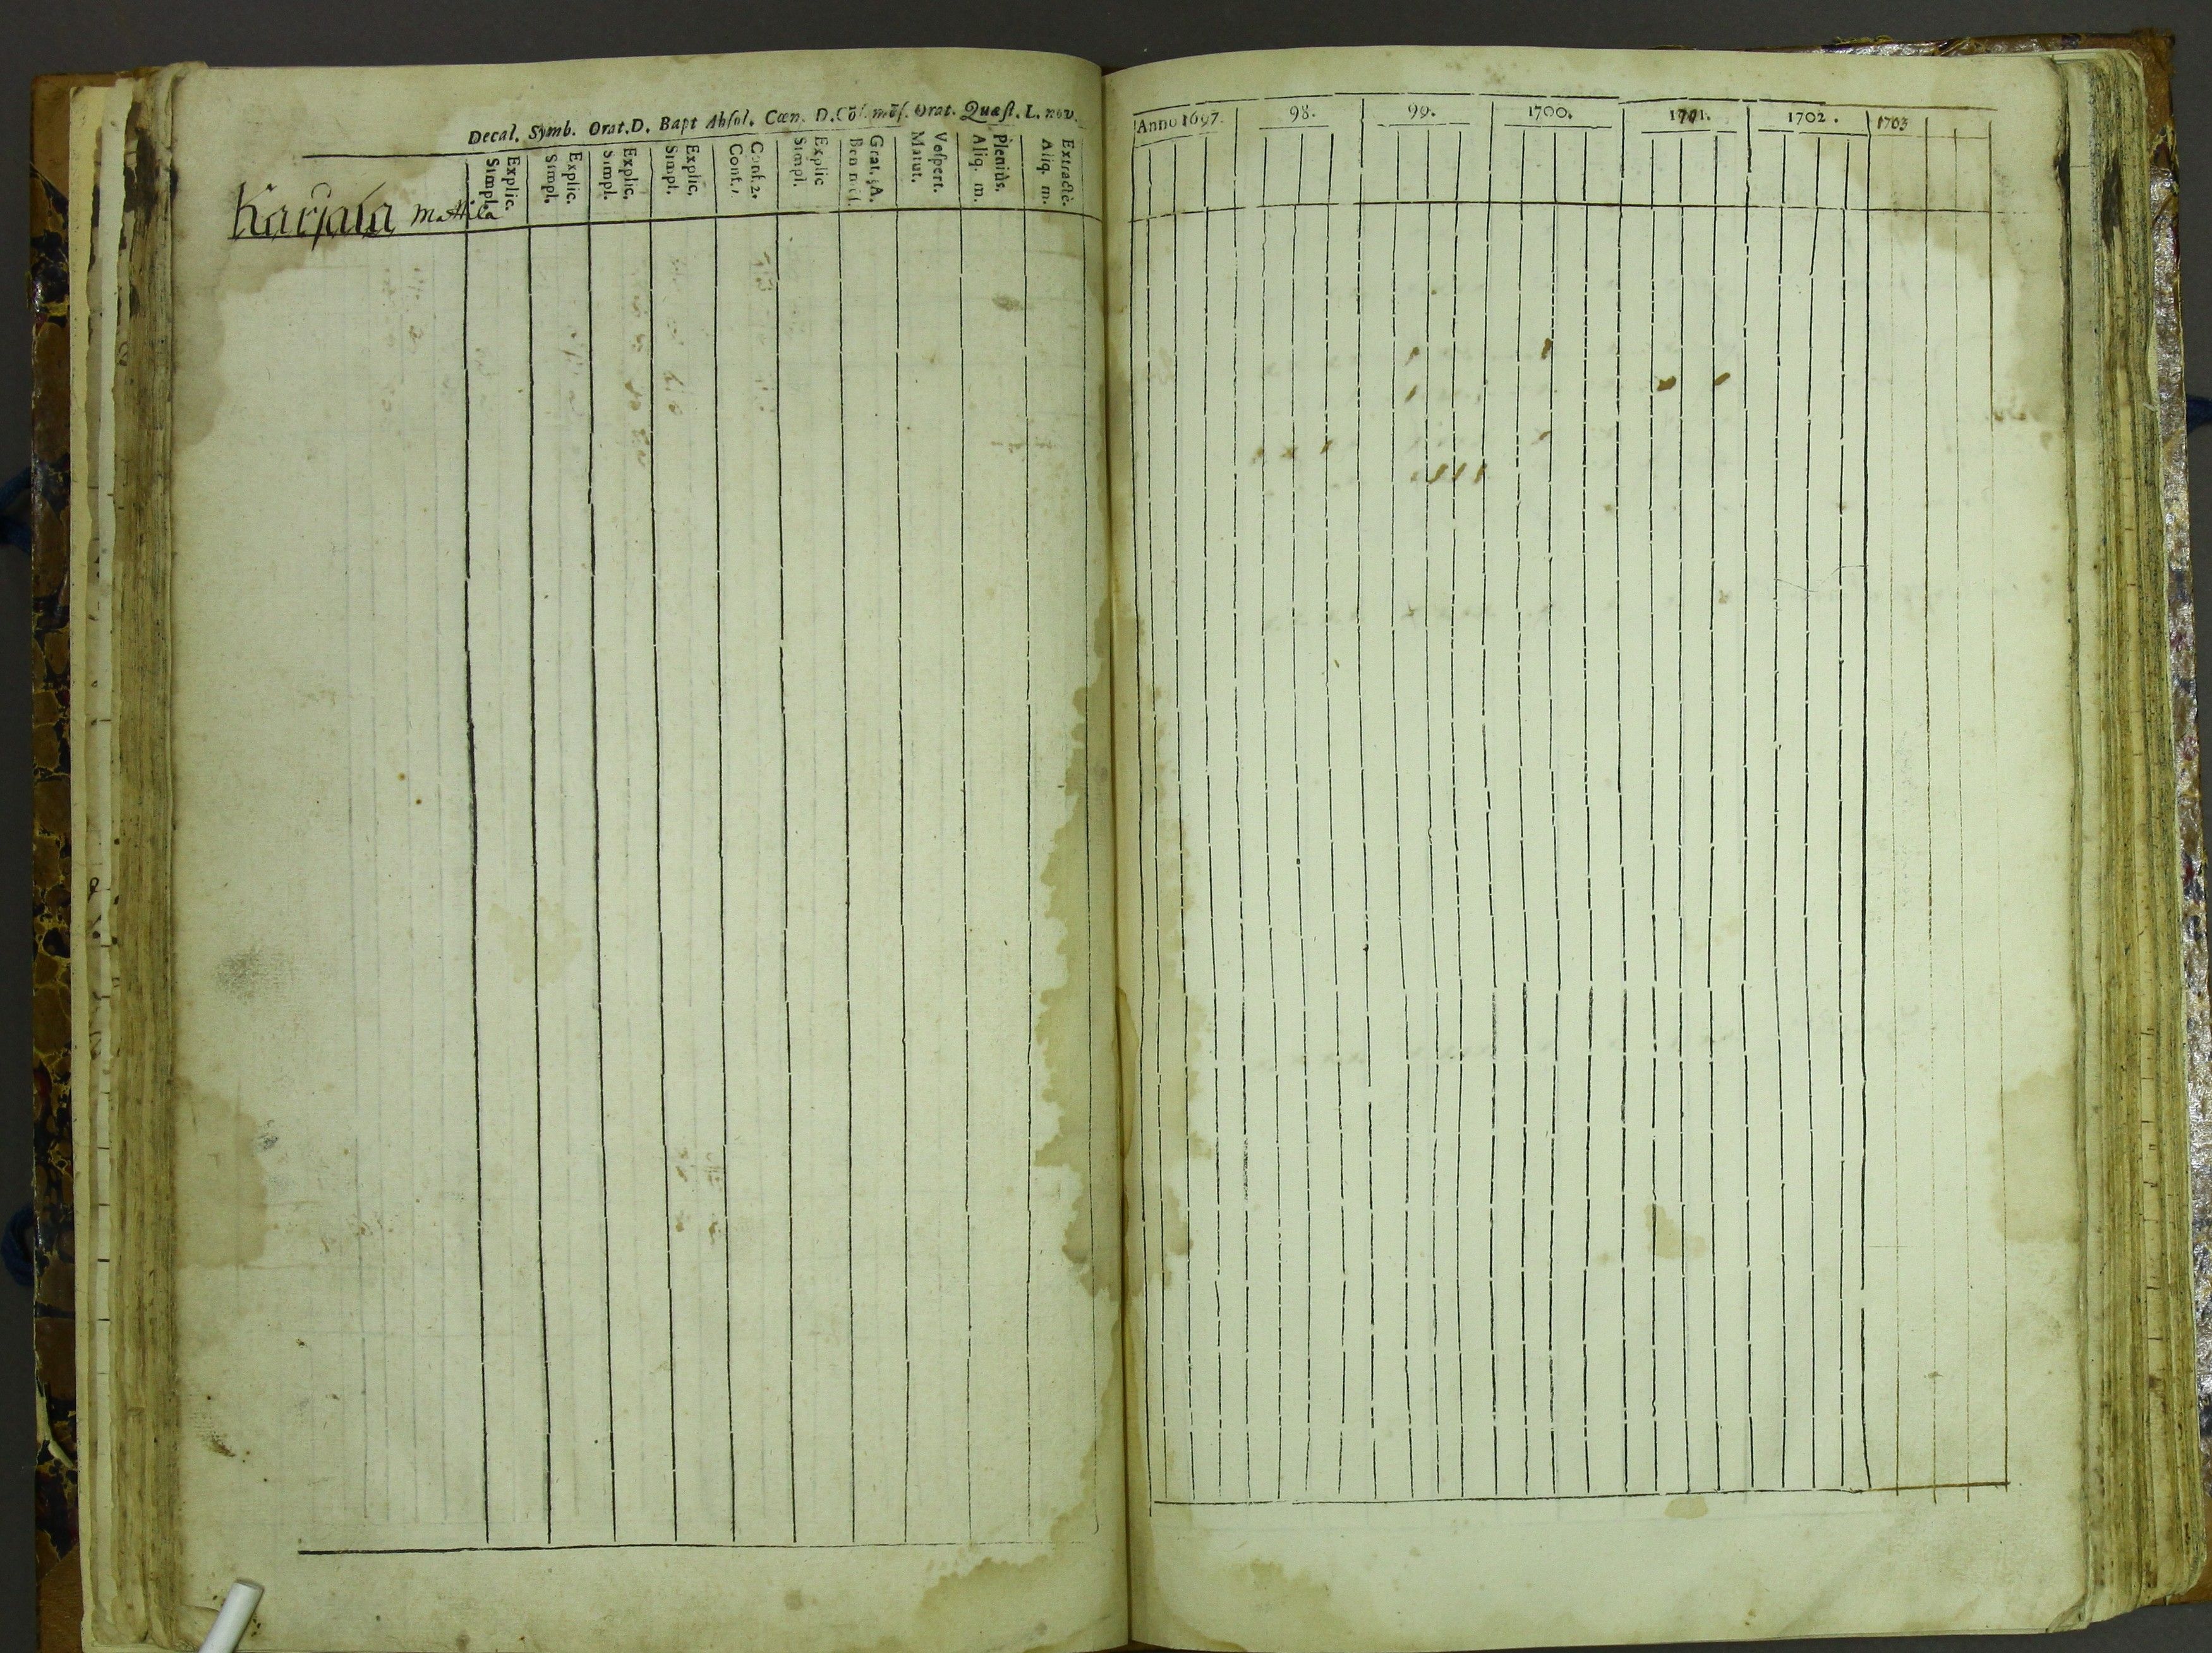 Decal. Symb. Orat.D. Bapt Absol. Cæn. D. Cõf. mẽs. Orat. Quæst. L. nov.
Explic. Simpl.
Explic. Simpl.
Explic. Simpl.
Explic. Simpl.
Conf.2. Conf.1
Explic Simpl.
Grat. A. Ben m
Vespert. Matut.
Pleniùs. Aliq. m.
Extractè. Aliq. m.
Karjala Mattila
Anno 1697. 98. 99. 1700. 1701. 1702. 1703